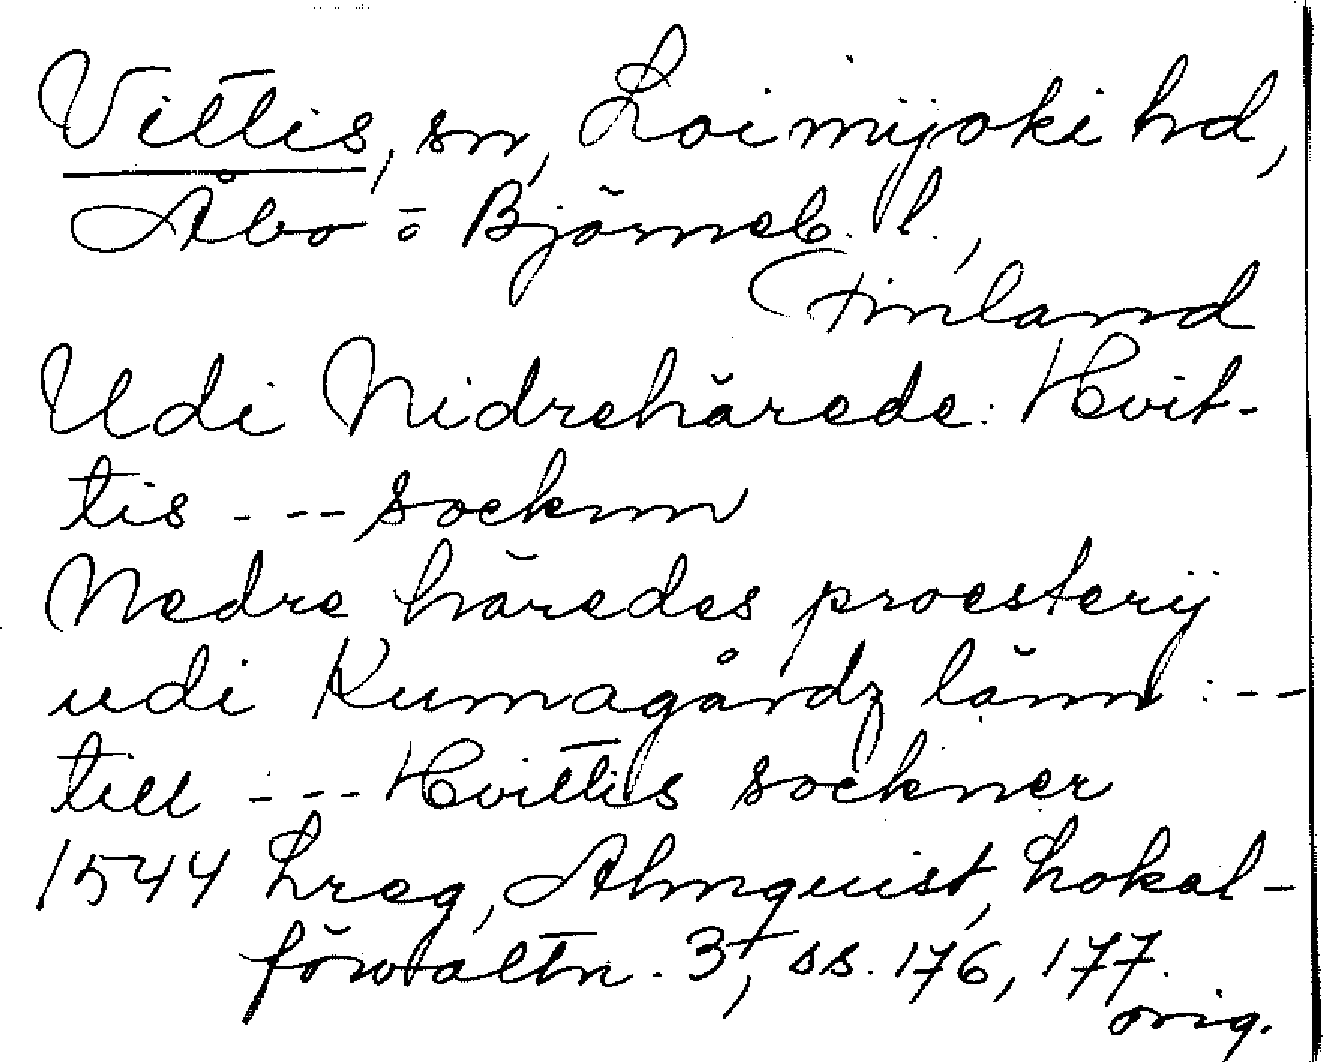 Vittis, sn, Loimijoki hd,
Åbo o Björneb. l.,
Finland
Udi Nidrehärede: Hvit-
tis - -- socknn
Nedre häredes proesterÿ
udi Kumagårdz länn : --
till - -- Hvittis sockner
1544 Lreg, Almquist, Lokal-
förvaltn. 3, ss. 176, 177.
orig.